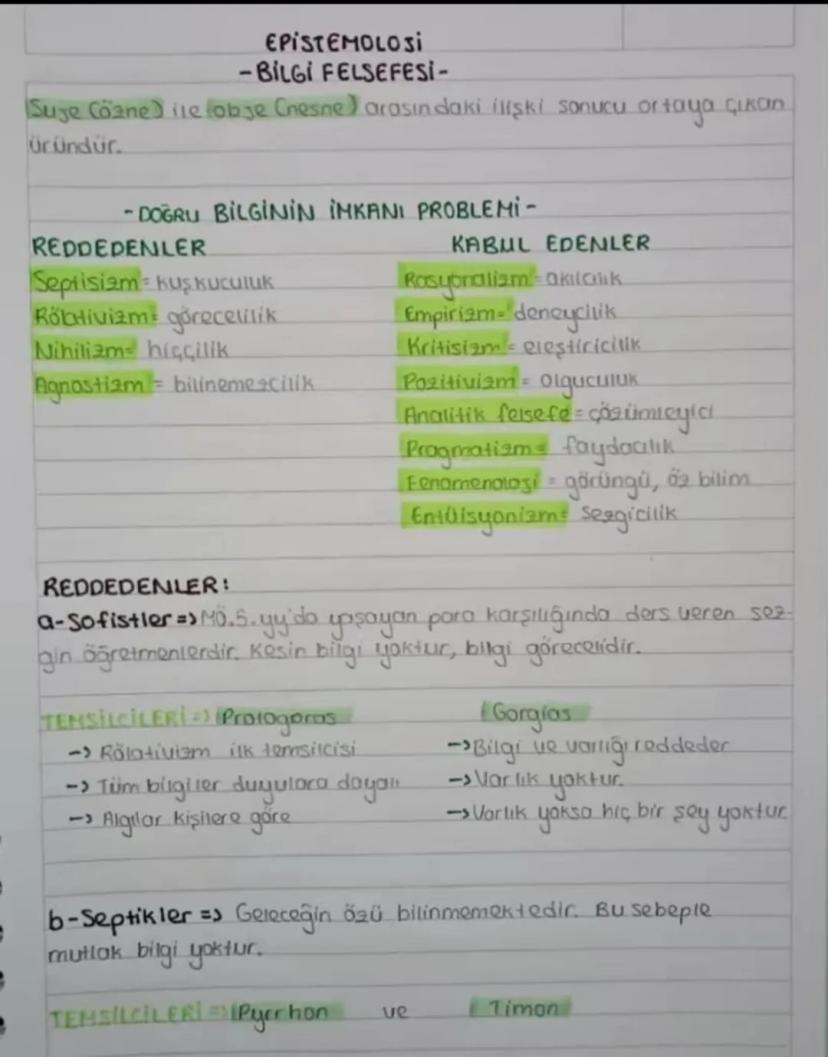 EPİSTEMOLOJİ
-BİLGİ FELSEFESİ-
Suje (özne) ile (obje (nesne) arasındaki ilişki sonucu ortaya çıkan
üründür.
-DOĞRU BİLGİNİN İMKANI PROBLEMİ-
REDDEDENLER
KABUL EDENLER
Septisizm = kuşkuculuk
Rasyonalizm = akılcılık
Rölativizm = görecelilik
Empirizm = deneycilik
Nihilizm = hiççilik
Kritisizm = eleştiricilik
Agnostizm = bilinemezcilik
Pozitivizm = olguculuk
Analitik felsefe = çözümleyici
Pragmatizm = faydacılık
Fenomenoloji = görüngü, öz bilim
Entüisyonizm = sezgicilik
REDDEDENLER:
a-Sofistler => MÖ.5.yy'da yaşayan para karşılığında ders veren sez-
gin öğretmenlerdir. Kesin bilgi yoktur, bilgi görecelidir.
TEMSİLCİLERİ => Protogoras
Gorgias
-> Rölativizm ilk temsilcisi
-> Bilgi ve varlığı reddeder
-> Tüm bilgiler duyulara dayalı
-> Varlık yoktur.
-> Algılar kişilere göre
-> Varlık yoksa hiç bir şey yoktur.
b-Septikler => Geleceğin özü bilinmemektedir. Bu sebeple
mutlak bilgi yoktur.
TEMSİLCİLERİ => Pyrrhon ve Timon